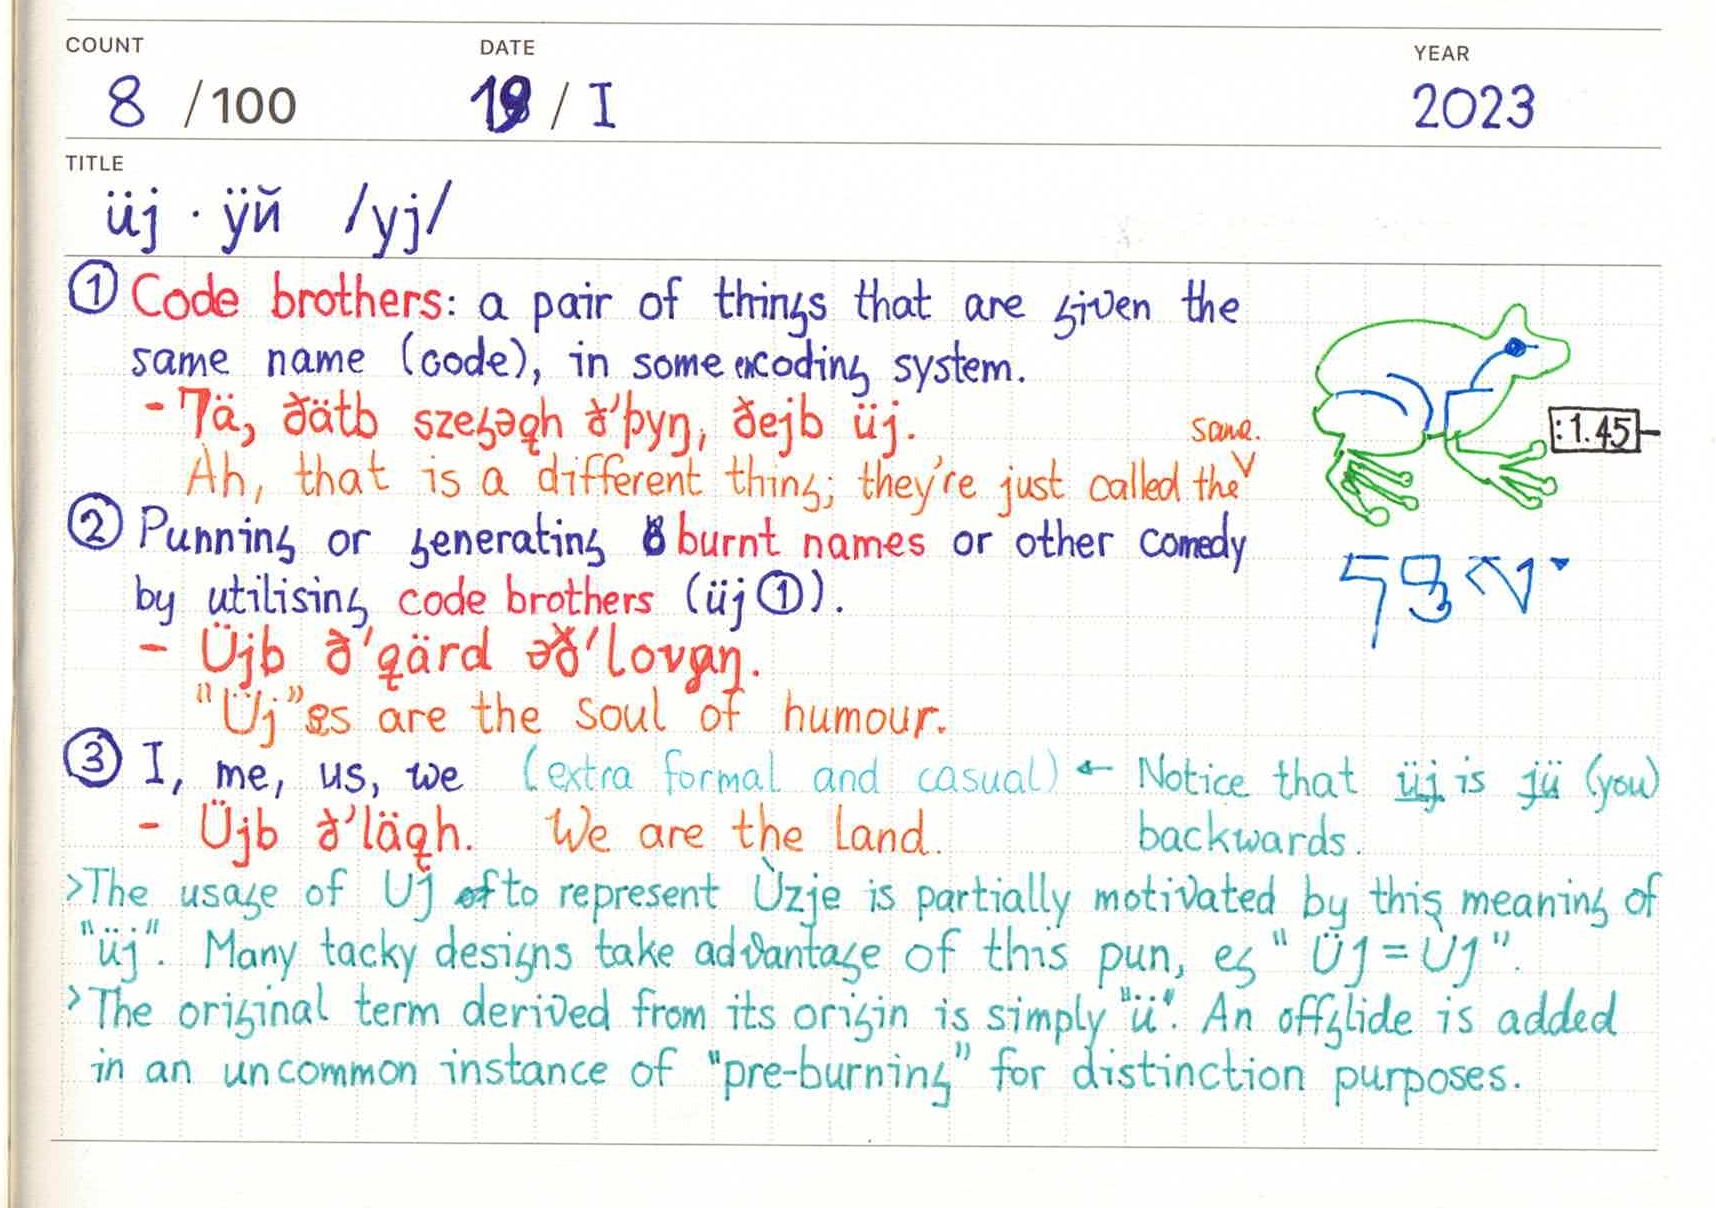 COUNT DATE YEAR
8 /100 19 / I 2023
TITLE
üj · ӱй /yj/
① Code brothers: a pair of things that are given the
same name (code), in some encoding system.
- Tä, ðätb szeȝəqh ð'þyŋ, ðejb üj.
Ah, that is a different thing; they're just called the same.
② Punning or generating burnt names or other comedy
by utilising code brothers (üj ①).
- Üjb ð'qärd əð'lovyŋ.
"Üj"es are the soul of humour.
③ I, me, us, we (extra formal and casual) ← Notice that üj is jü (you)
backwards.
- Üjb ð'läqh. We are the land.
>The usage of UJ to represent Ùzje is partially motivated by this meaning of
"üj". Many tacky designs take advantage of this pun, eg "ÜJ = ÙJ".
>The original term derived from its origin is simply "ü". An offglide is added
in an uncommon instance of "pre-burning" for distinction purposes.
:1.45